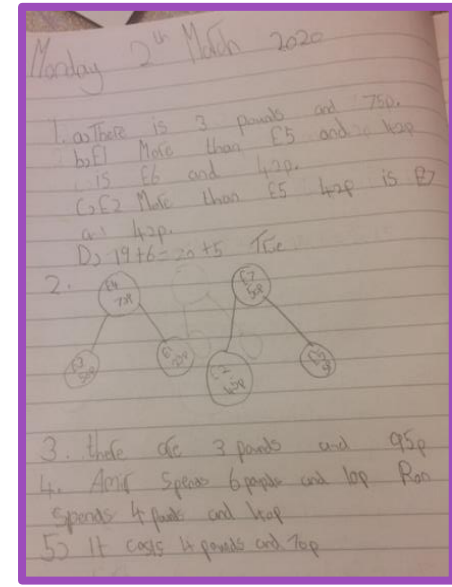 Monday 2th March 2020
1. a) There is 3 pounds and 75p.
b) £1 More than £5 and 42p
is £6 and 42p.
C) £2 More than £5 42p is £7
a: 42p.
D) 19+6=20+5 True
2.
3. there are 3 pounds and 95p
4. Amir Spends 6 and 10p Ron
Spends 4 and 40p
5) It costs 4 pounds and 70p